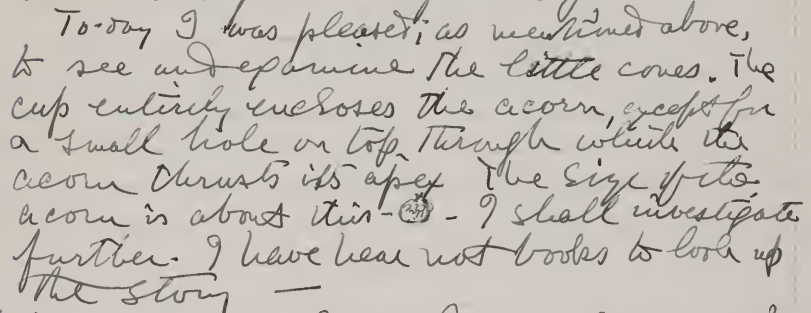 To-day I was pleased, as mentioned above,
to see and examine the little cones. The
cup entirely encloses the acorn, except for
a small hole on top, through which the
acorn thrusts its apex The size of the
acorn is about this - - I shall investigate
further. I have hear not books to look up
the story —